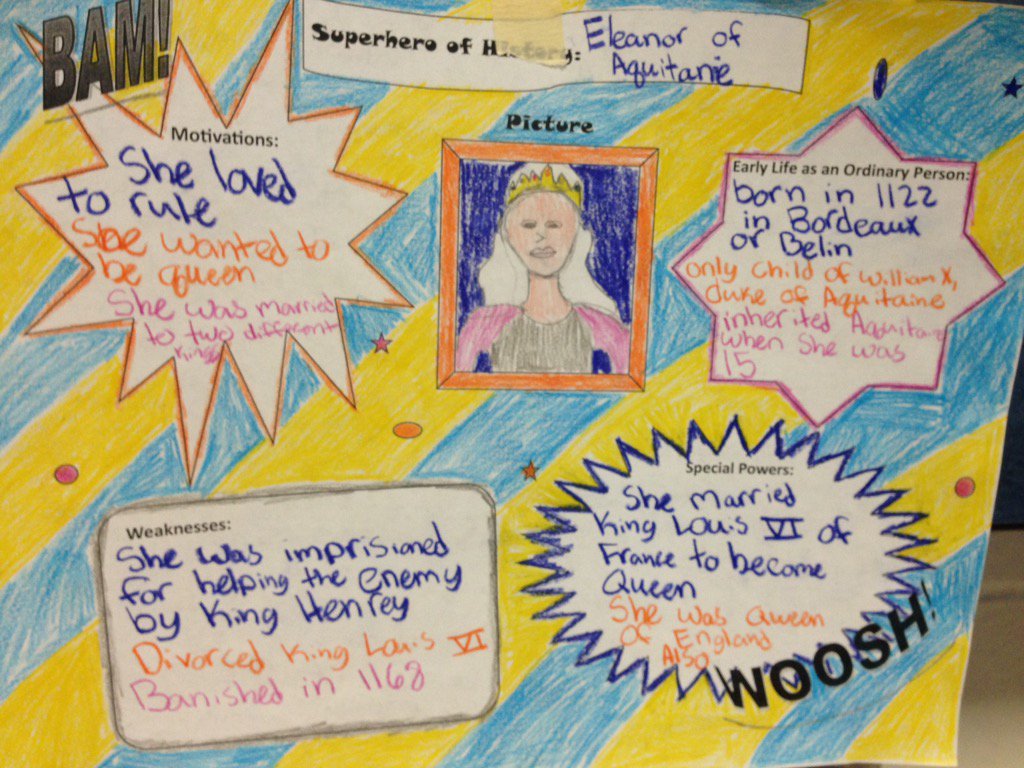 BAM!
Superhero of History: Eleanor of
Aquitanie
Motivations:
She loved
to rule
She wanted to
be queen
She was married
to two different
kings
Picture
Early Life as an Ordinary Person:
born in 1122
in Bordeaux
or Belin
only child of William X,
duke of Aquitaine
inherited
when she was
15
Weaknesses:
She was imprisioned
for helping the enemy
by King Henrey
Divorced King Louis VI
Banished in 1168
Special Powers:
She married
King Louis VI of
France to become
Queen
She was queen
of England
Also
WOOSH!